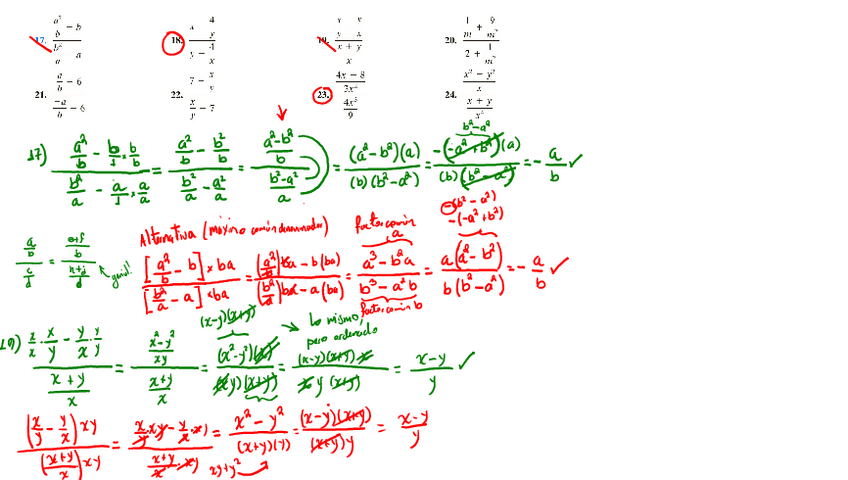 17. (a²/b − b)/(b²/a − a) 18. (x − 4/y)/(y − 4/x) 19. (x/y − y/x)/((x + y)/x) 20. (1/m + 9/m²)/(2 + 1/m²)
21. (a/b − 6)/(−a/b − 6) 22. (7 − x/y)/(x/y − 7) 23. ((4x − 8)/3x²)/(4x³/9) 24. ((x² − y²)/x)/((x + y)/x²)
17) (a²/b − b/1 × b/b)/(b²/a − a/1 × a/a) = (a²/b − b²/b)/(b²/a − a²/a) = ((a² − b²)/b)/((b² − a²)/a) = ((a² − b²)(a))/((b)(b² − a²)) = (−(−a² + b²)(a))/((b)(b² − a²)) = − a/b ✓
b² − a²
−(b² − a²)
−(−a² + b²)
Alternativa (máximo común denominador)
factor común a
[a²/b − b] × ba/[b²/a − a] × ba = ((a²/b)ba − b(ba))/((b²/a)ba − a(ba)) = (a³ − b²a)/(b³ − a²b) = (a(a² − b²))/(b(b² − a²)) = − a/b ✓
factor común b
(a/b)/(c/d) = ((e+f)/b)/((h+j)/d)
(x−y)(x+y)
Lo mismo,
pero ordenado
19) (x/x · x/y − y/x · y/y)/((x + y)/x) = ((x² − y²)/xy)/((x+y)/x) = ((x² − y²)(x))/((xy)(x+y)) = ((x−y)(x+y) x)/(x y (x+y)) = (x−y)/y ✓
((x/y − y/x) xy)/(((x+y)/x) xy) = (x/y · xy − y/x · xy)/((x+y)/x · xy) = (x² − y²)/((x+y)(y)) = ((x−y)(x+y))/((x+y)y) = (x−y)/y
xy + y²